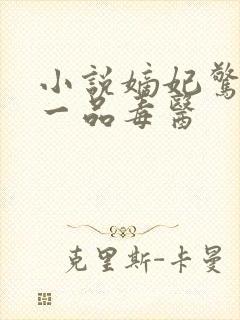 小說嫡妃驚
一品毒醫
克里斯-卡曼